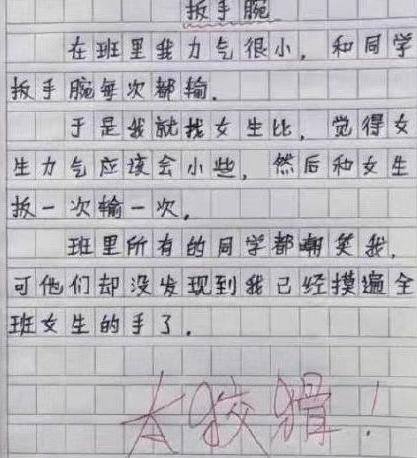 扳手腕
在班里我力气很小，和同学
扳手腕每次都输．
于是我就找女生比，觉得女
生力气应该会小些，然后和女生
扳一次输一次，
班里所有的同学都嘲笑我，
可他们却没发现到我已经摸遍全
班女生的手了．
太狡猾！